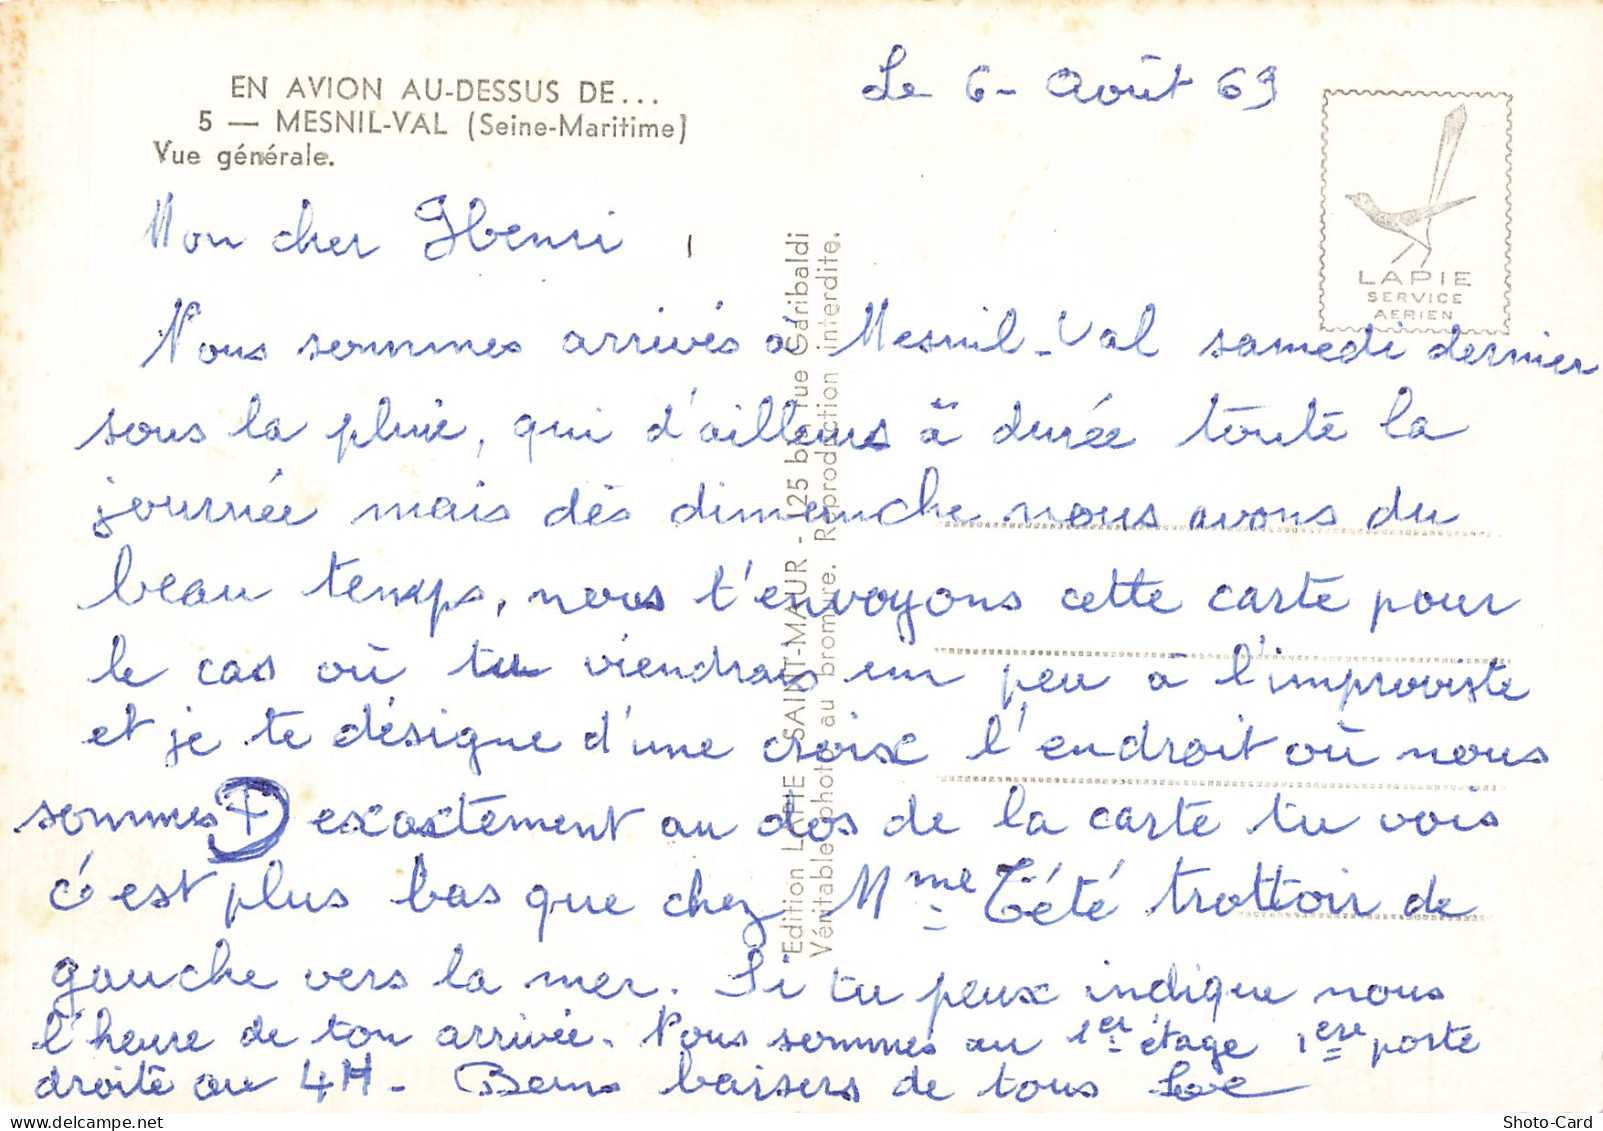 EN AVION AU-DESSUS DE...
5 — MESNIL-VAL (Seine-Maritime)
Vue générale.
Le 6 - Août 69
LAPIE
SERVICE
AERIEN
Mon cher Henri
Nous sommes arrivés à Mesnil-Val samedi dernier
sous la pluie, qui d'ailleurs à durée toute la
journée mais dès dimanche nous avons du
beau temps, nous t'envoyons cette carte pour
le cas où tu viendrais un peu à l'improviste
et je te désigne d'une croix l'endroit où nous
sommes + exactement au dos de la carte tu vois
c'est plus bas que chez Mme Tété trottoir de
gauche vers la mer. Si tu peux indique nous
l'heure de ton arrivée. Nous sommes au 1er étage 1ere porte
droite au 4H - Bons baisers de tous
Edition LAPIE - SAINT-MAUR - 125 bis, rue Garibaldi
Véritable photo au bromure. Reproduction interdite.
Shoto-Card